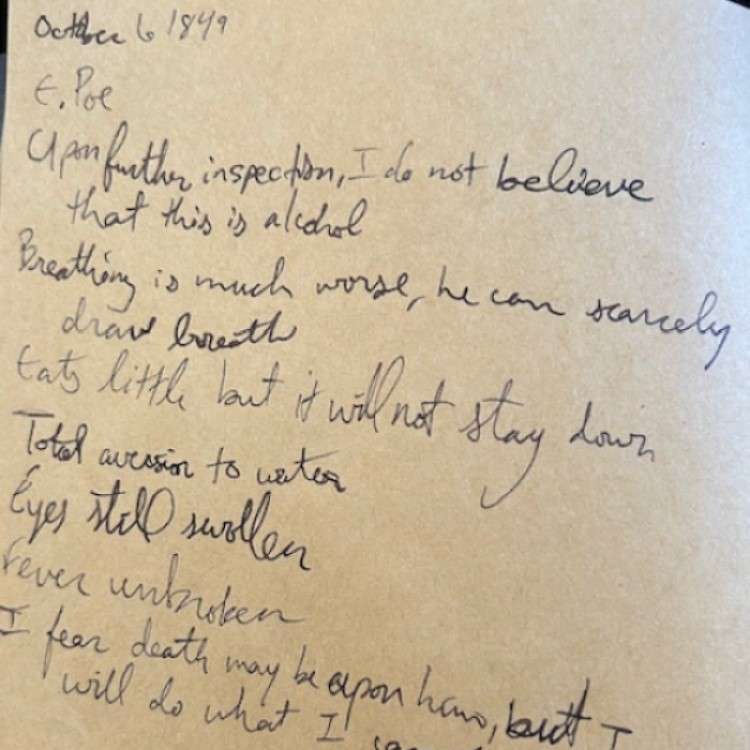 October 6 1849
E. Poe
Upon further inspection, I do not believe
that this is alcohol
Breathing is much worse, he can scarcely
draw breath
Eats little but it will not stay down
Total aversion to water
Eyes still swollen
Fever unbroken
I fear death may be upon him, but I
will do what I